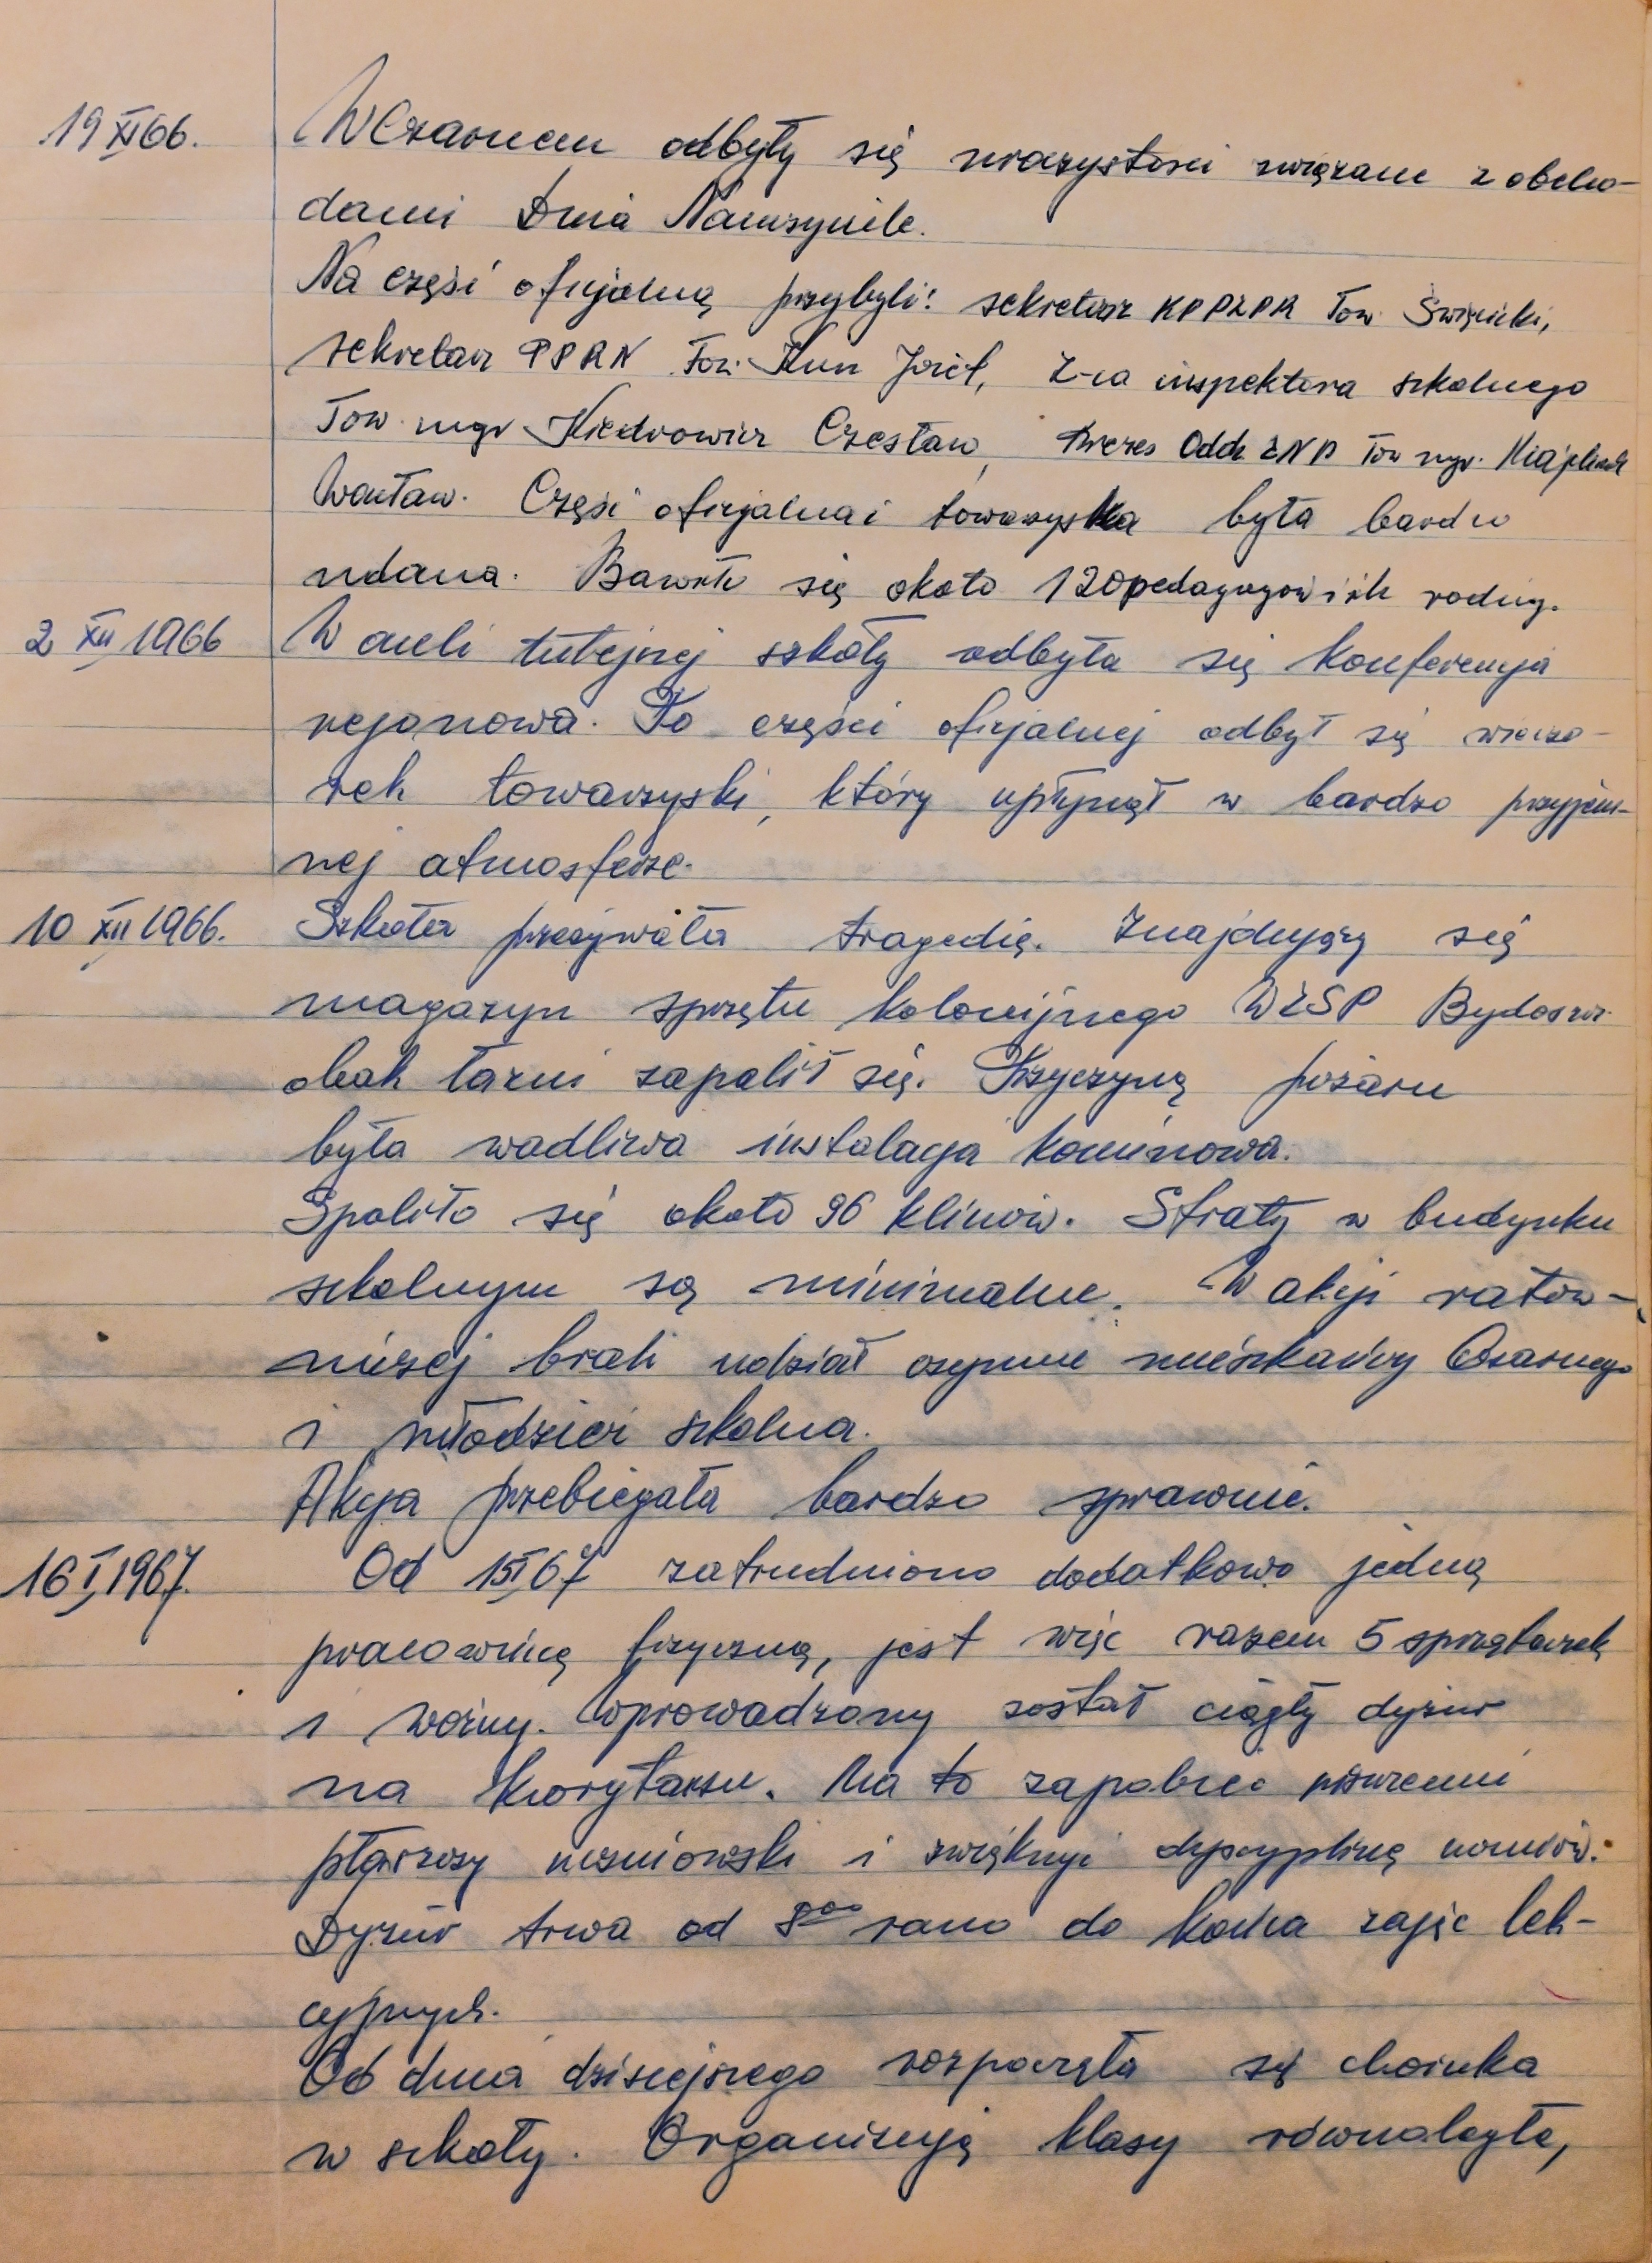 19 XI 66. W Czarnem odbyły się uroczystości związane z obcho-
dami Dnia Nauczyciela.
Na część oficjalną przybyli: sekretarz KPPZPR Tow. Święcicki,
sekretarz PPRN Tow. Kun Józef, Z-ca inspektora szkolnego
Tow. mgr Kiedrowicz Czesław, Prezes Oddz ZNP Tow mgr.
Wacław. Część oficjalna i towarzyska była bardzo
udana. Bawiło się około 120 pedagogów i ich rodziny.
2 XII 1966 W auli tutejszej szkoły odbyła się konferencja
rejonowa. Po części oficjalnej odbył się wieczo-
rek towarzyski, który upłynął w bardzo przyjem-
nej atmosferze.
10 XII 1966. Szkoła przeżywała tragedię. Znajdujący się
magazyn sprzętu kolonijnego WZSP Bydgoszcz
obok łaźni zapalił się. Przyczyną pożaru
była wadliwa instalacja kominowa.
Spaliło się około 96 klinów. Straty w budynku
szkolnym są minimalne. W akcji ratow-
niczej brali udział czynnie mieszkańcy Czarnego
i młodzież szkolna.
Akcja przebiegała bardzo sprawnie.
16 I 1967. Od 15 I 67 zatrudniono dodatkowo jedną
pracownicę fizyczną, jest więc razem 5 sprzątaczek
i woźny. Wprowadzony został ciągły dyżur
na korytarzu. Ma to zapobiec niszczeniu
płaszczy uczniowski i zwiększyć dyscyplinę uczniów.
Dyżur trwa od 8⁰⁰ rano do końca zajęć lek-
cyjnych.
Od dnia dzisiejszego rozpoczęła się choinka
w szkoły. Organizują klasy równoległe,